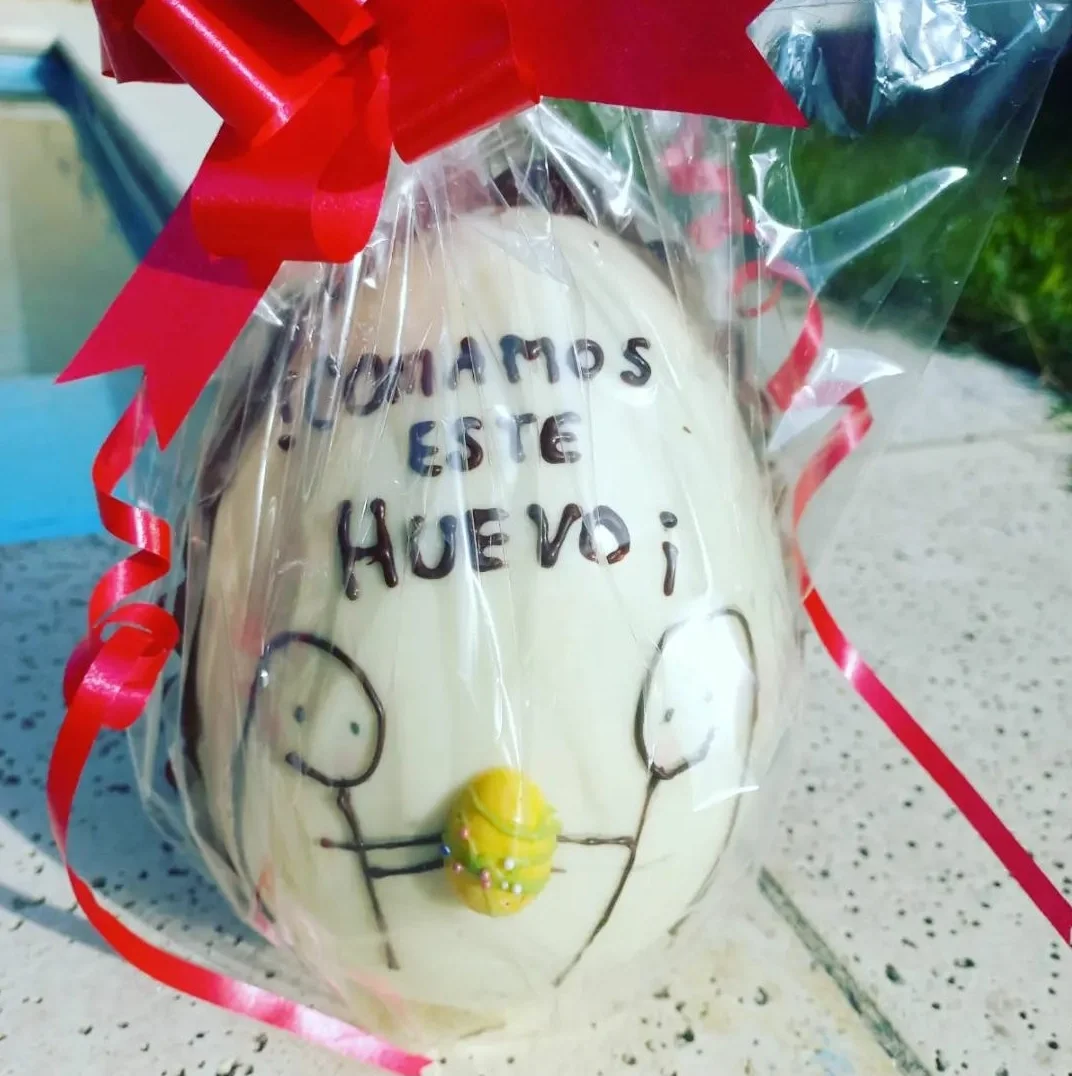 ¡COMAMOS
ESTE
HUEVO¡